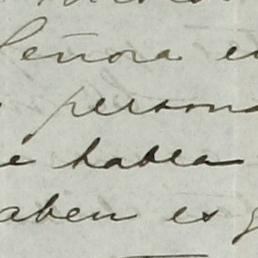 Señora e
persona
e habla
aben es g